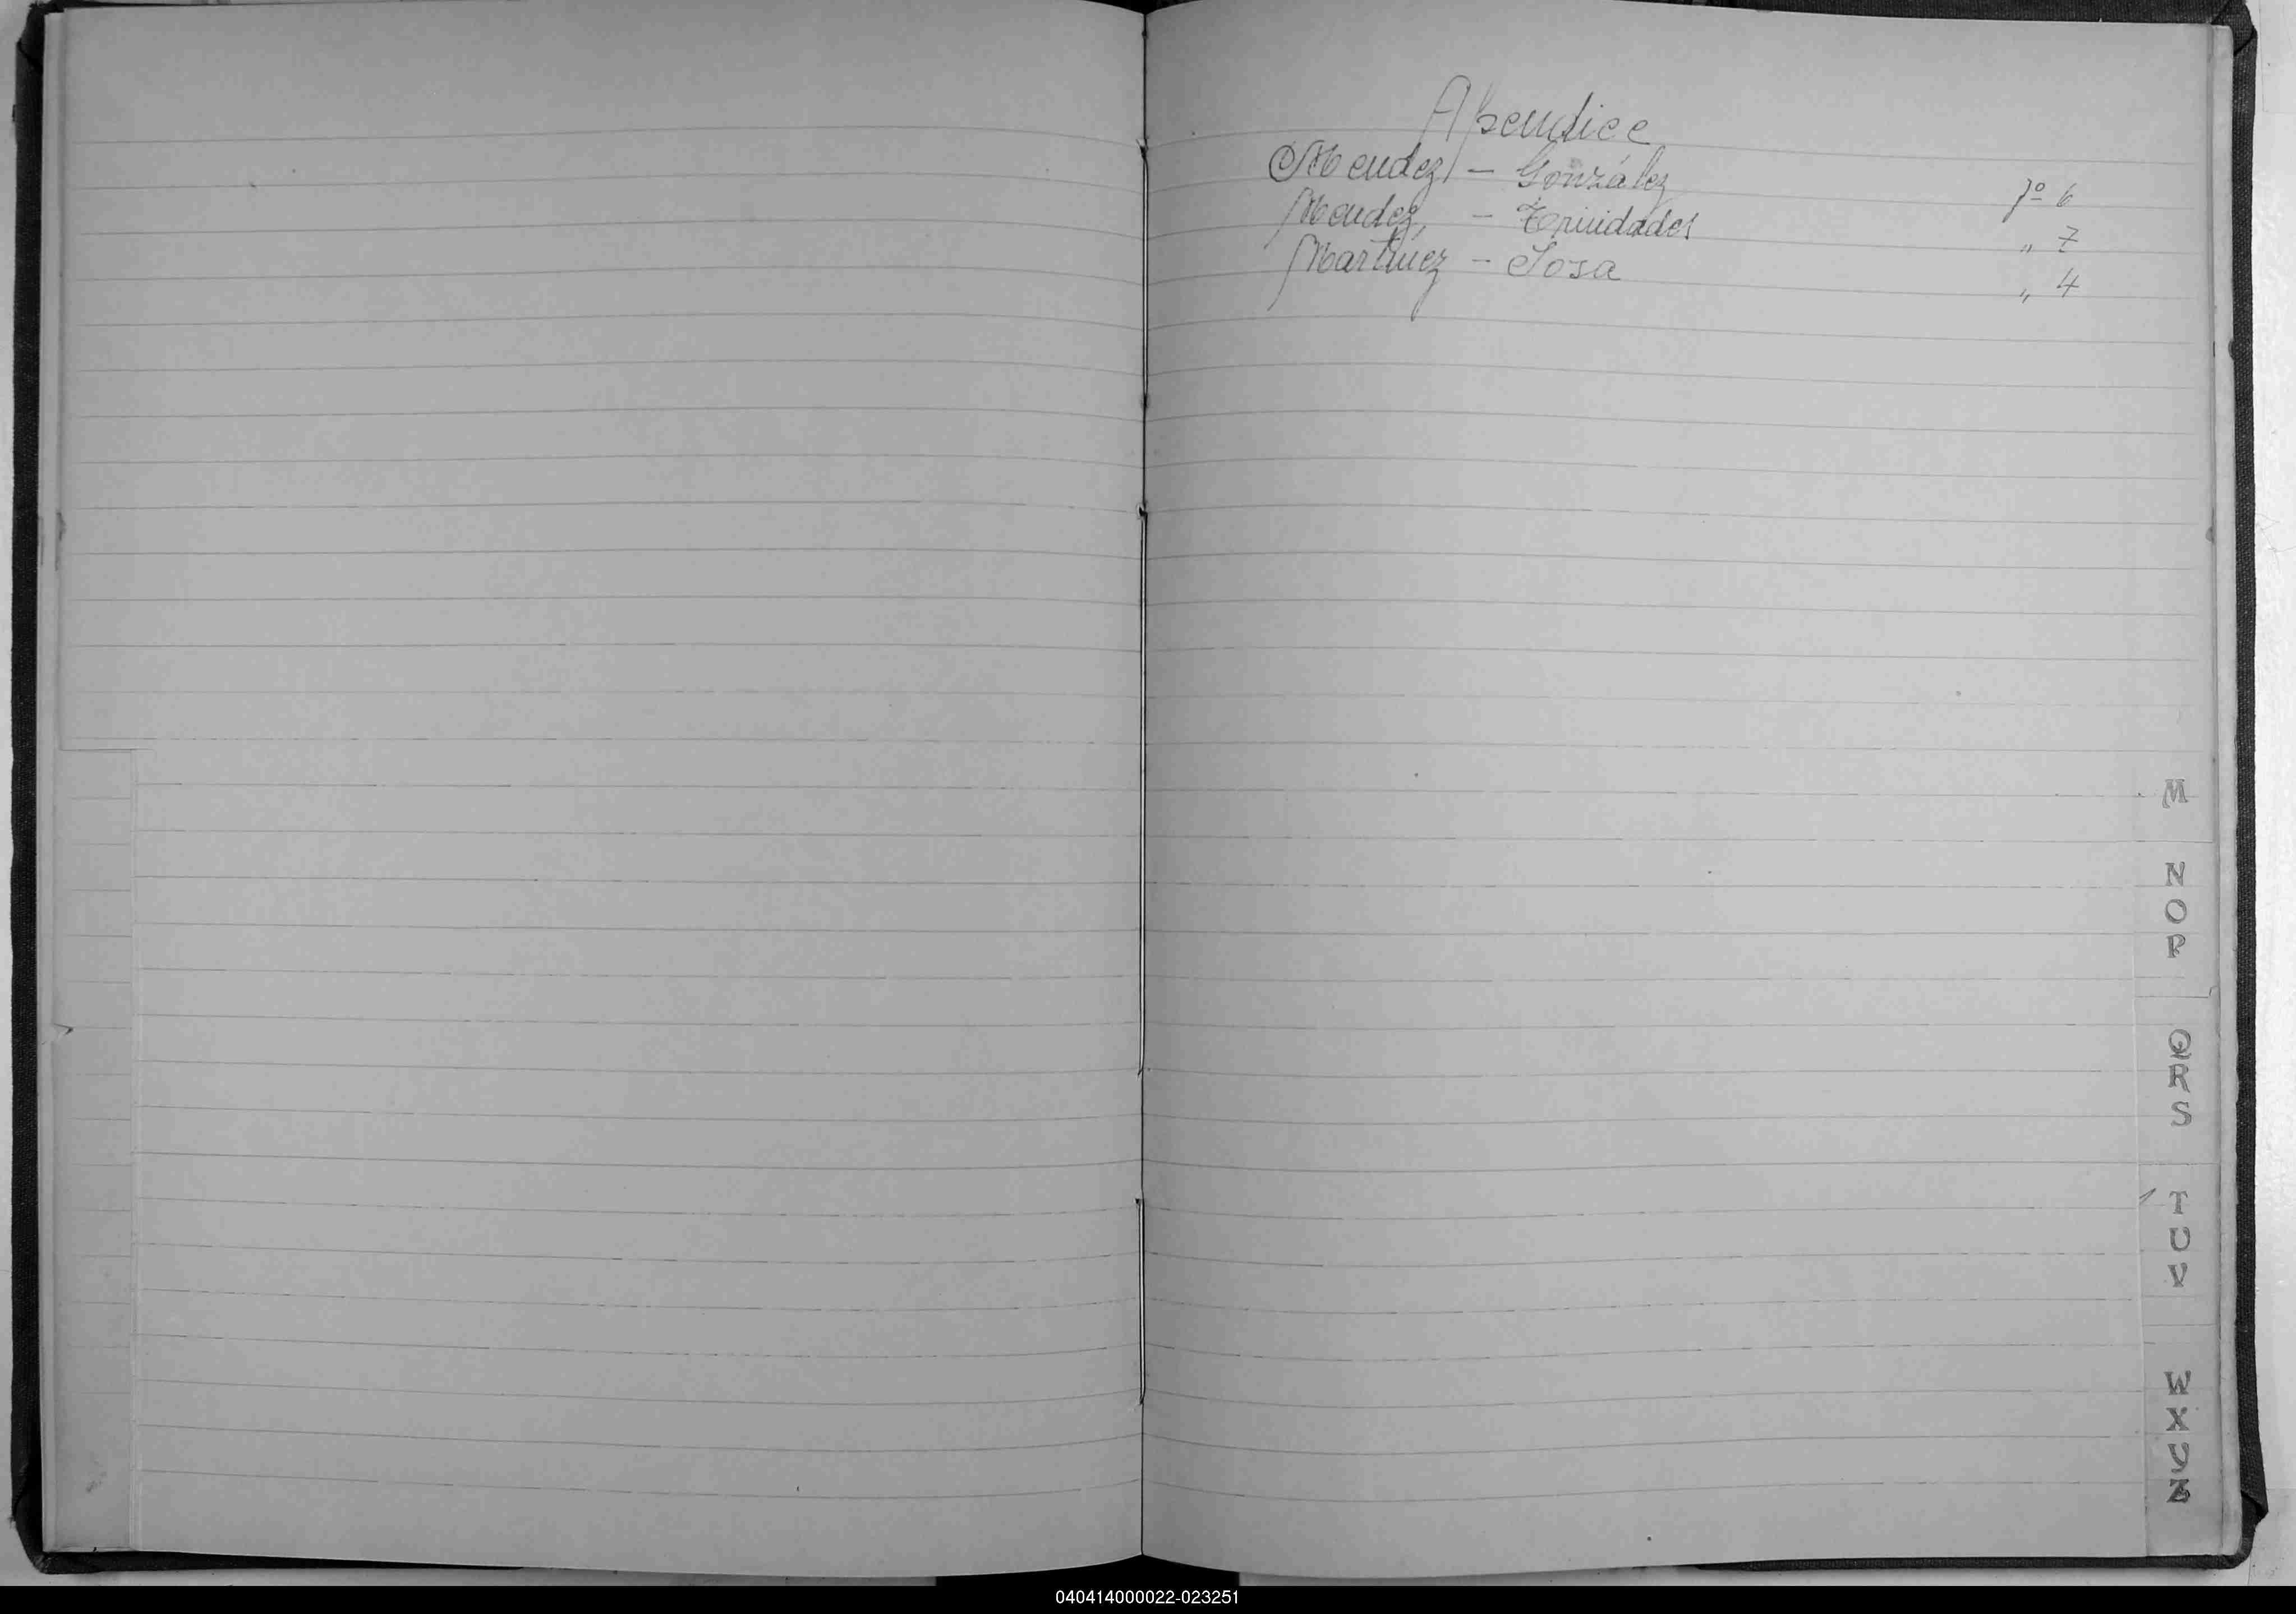 Apendice
Mendez - González fº 6
Mendez, - Trinidades " 7
Martínez - Sosa " 4
M
N
O
P
Q
R
S
T
U
V
W
X
Y
Z
040414000022-023251